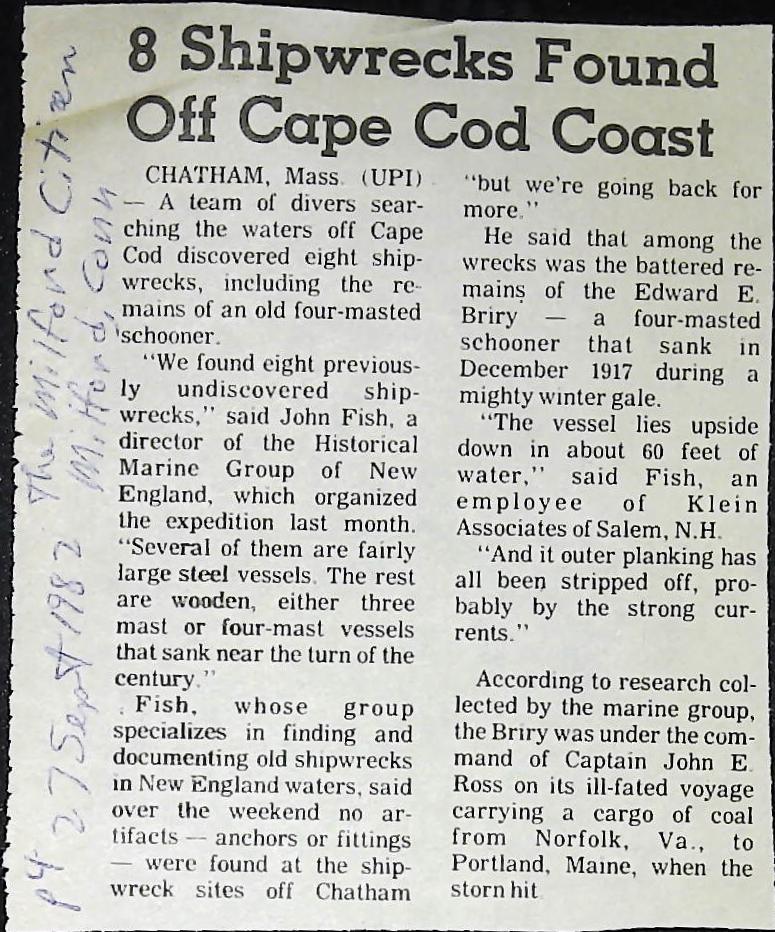 8 Shipwrecks Found
Off Cape Cod Coast
CHATHAM, Mass. (UPI)
— A team of divers sear-
ching the waters off Cape
Cod discovered eight ship-
wrecks, including the re-
mains of an old four-masted
schooner.
"We found eight previous-
ly undiscovered ship-
wrecks," said John Fish, a
director of the Historical
Marine Group of New
England, which organized
the expedition last month.
"Several of them are fairly
large steel vessels. The rest
are wooden, either three
mast or four-mast vessels
that sank near the turn of the
century."
Fish, whose group
specializes in finding and
documenting old shipwrecks
in New England waters, said
over the weekend no ar-
tifacts — anchors or fittings
— were found at the ship-
wreck sites off Chatham
"but we're going back for
more."
He said that among the
wrecks was the battered re-
mains of the Edward E.
Briry — a four-masted
schooner that sank in
December 1917 during a
mighty winter gale.
"The vessel lies upside
down in about 60 feet of
water," said Fish, an
employee of Klein
Associates of Salem, N.H.
"And it outer planking has
all been stripped off, pro-
bably by the strong cur-
rents."
According to research col-
lected by the marine group,
the Briry was under the com-
mand of Captain John E.
Ross on its ill-fated voyage
carrying a cargo of coal
from Norfolk, Va., to
Portland, Maine, when the
storn hit
p4 27 Sept 1982 The Milford Citizen
Milford, Conn